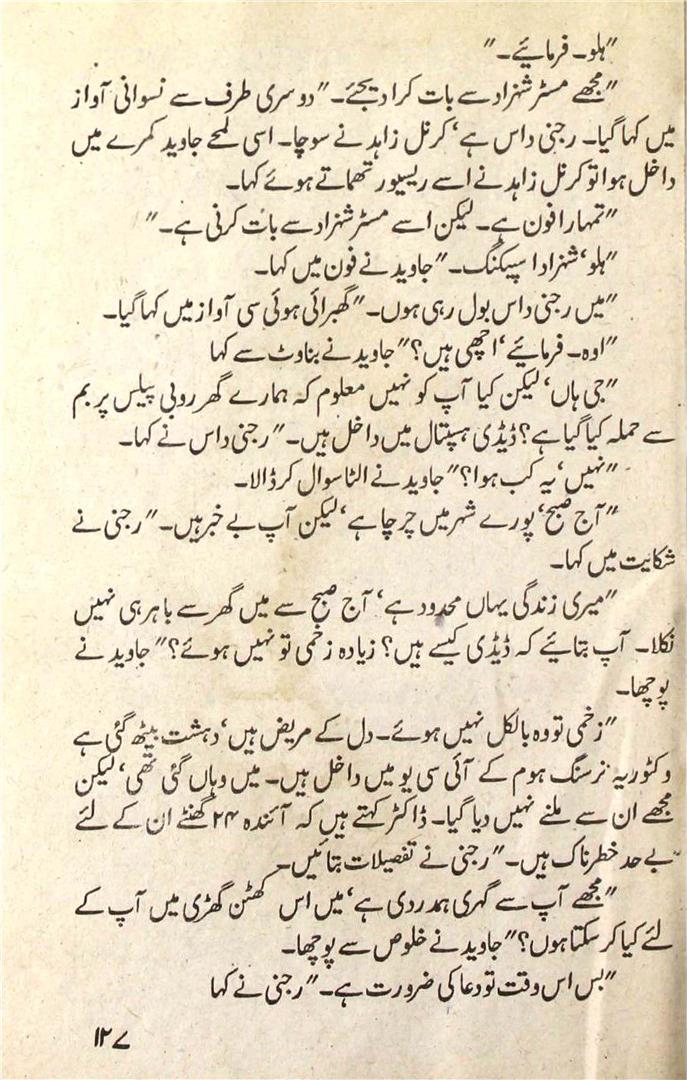 "ہلو۔ فرمائیے۔"
"مجھے مسٹر شہزاد سے بات کرا دیجئے۔" دوسری طرف سے نسوانی آواز
میں کہا گیا۔ رجنی داس ہے، کرنل زاہد نے سوچا۔ اسی لمحے جاوید کمرے میں
داخل ہوا تو کرنل زاہد نے اسے ریسیور تھماتے ہوئے کہا۔
"تمہارا فون ہے۔ لیکن اسے مسٹر شہزاد سے بات کرنی ہے۔"
"ہلو، شہزاد اسپیکنگ۔" جاوید نے فون میں کہا۔
"میں رجنی داس بول رہی ہوں۔" گھبرائی ہوئی سی آواز میں کہا گیا۔
"اوہ۔ فرمائیے، اچھی ہیں؟" جاوید نے بناوٹ سے کہا
"جی ہاں، لیکن کیا آپ کو نہیں معلوم کہ ہمارے گھر روبی پیلس پر بم
سے حملہ کیا گیا ہے؟ ڈیڈی ہسپتال میں داخل ہیں۔" رجنی داس نے کہا۔
"نہیں، یہ کب ہوا؟" جاوید نے الٹا سوال کر ڈالا۔
"آج صبح، پورے شہر میں چرچا ہے، لیکن آپ بے خبر ہیں۔" رجنی نے
شکایت میں کہا۔
"میری زندگی یہاں محدود ہے، آج صبح سے میں گھر سے باہر ہی نہیں
نکلا۔ آپ بتائیے کہ ڈیڈی کیسے ہیں؟ زیادہ زخمی تو نہیں ہوئے؟" جاوید نے
پوچھا۔
"زخمی تو وہ بالکل نہیں ہوئے۔ دل کے مریض ہیں، دہشت بیٹھ گئی ہے
وکٹوریہ نرسنگ ہوم کے آئی سی یو میں داخل ہیں۔ میں وہاں گئی تھی، لیکن
مجھے ان سے ملنے نہیں دیا گیا۔ ڈاکٹر کہتے ہیں کہ آئندہ ۲۴ گھنٹے ان کے لئے
بے حد خطرناک ہیں۔" رجنی نے تفصیلات بتائیں۔
"مجھے آپ سے گہری ہمدردی ہے، میں اس کٹھن گھڑی میں آپ کے
لئے کیا کر سکتا ہوں؟" جاوید نے خلوص سے پوچھا۔
"بس اس وقت تو دعا کی ضرورت ہے۔" رجنی نے کہا
۱۲۷